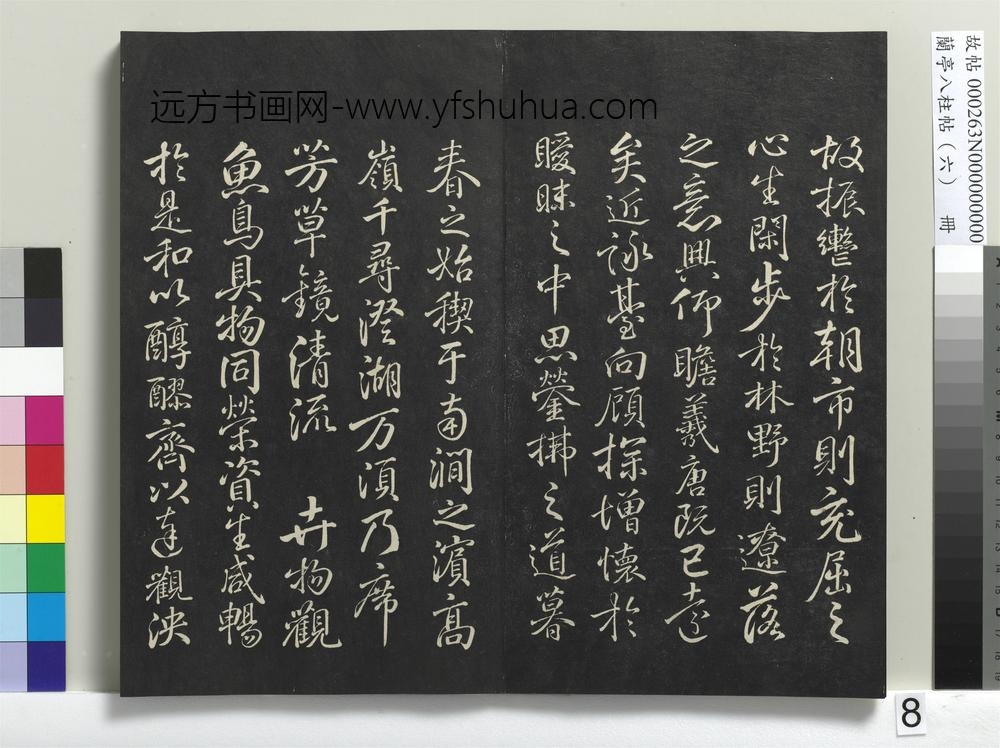 远方书画网-www.yfshuhua.com
故帖 000263N000000000
蘭亭八柱帖（六） 冊
故振轡於朝市則充屈之
心生閑步於林野則遼落
之意興仰瞻羲唐既已遠
矣近詠臺向顧探增懷於
曖昧之中思鎣拂之道暮
春之始禊于南澗之濱高
嶺千尋澄湖万頃乃席
芳草鏡清流 卉物觀
魚鳥具物同榮資生咸暢
於是和以醇醪齊以達觀泱
8